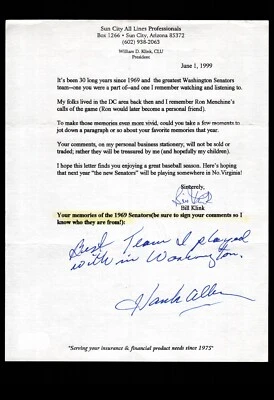 Sun City All Lines Professionals
Box 1266 • Sun City, Arizona 85372
(602) 938-2063
William D. Klink, CLU
President
June 1, 1999
It's been 30 long years since 1969 and the greatest Washington Senators
team—one you were a part of—and one I remember watching and listening to.
My folks lived in the DC area back then and I remember Ron Menchine's
calls of the game (Ron would later become a personal friend).
To make those memories even more vivid, could you take a few moments to
jot down a paragraph or so about your favorite memories that year.
Your comments, on my personal business stationery, will not be sold or
traded; rather they will be treasured by me (and hopefully my children).
I hope this letter finds you enjoying a great baseball season. Here's hoping
that next year "the new Senators" will be playing somewhere in No. Virginia!
Sincerely,
Bill Klink
Your memories of the 1969 Senators(be sure to sign your comments so I
know who they are from):
Best Team I played
with in Washington.
Hank Allen
"Serving your insurance & financial product needs since 1975"